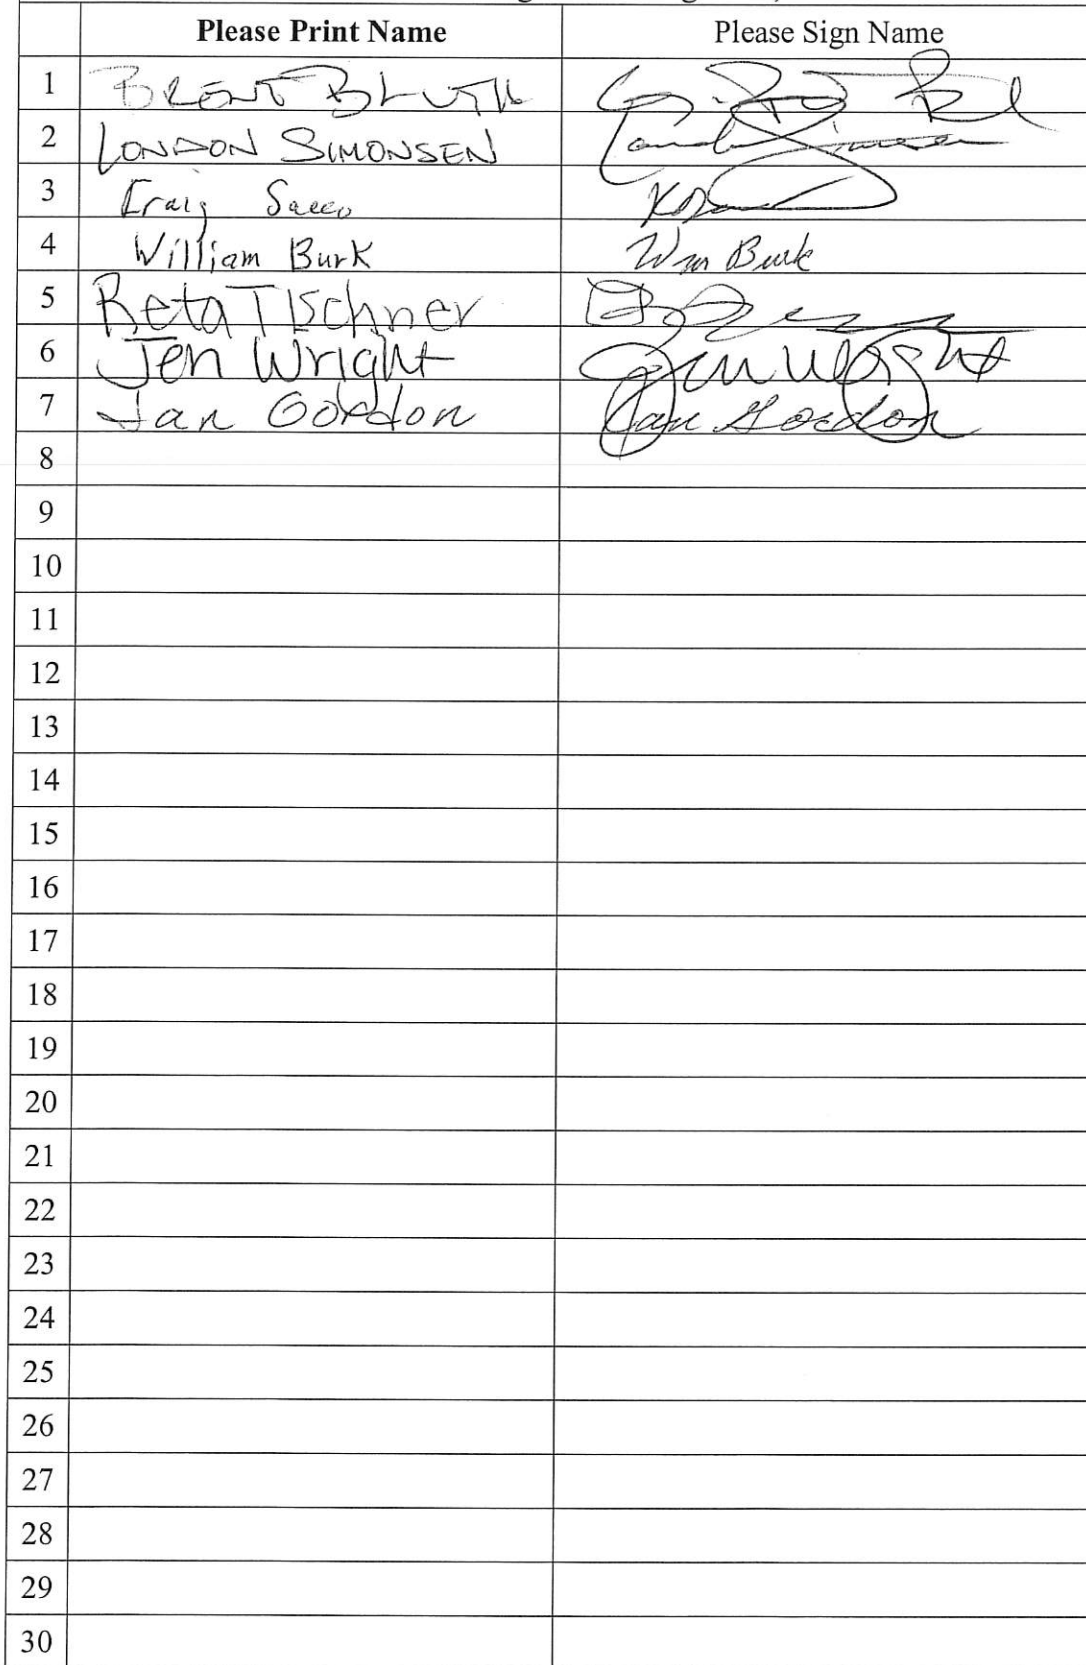 Please Print Name Please Sign Name
1 BRENT BLUTH
2 LONDON SIMONSEN
3 Craig Sacco
4 William Burk Wm Burk
5 Reta Tischner
6 Jen Wright Jen Wright
7 Jan Gordon Jan Gordon
8
9
10
11
12
13
14
15
16
17
18
19
20
21
22
23
24
25
26
27
28
29
30